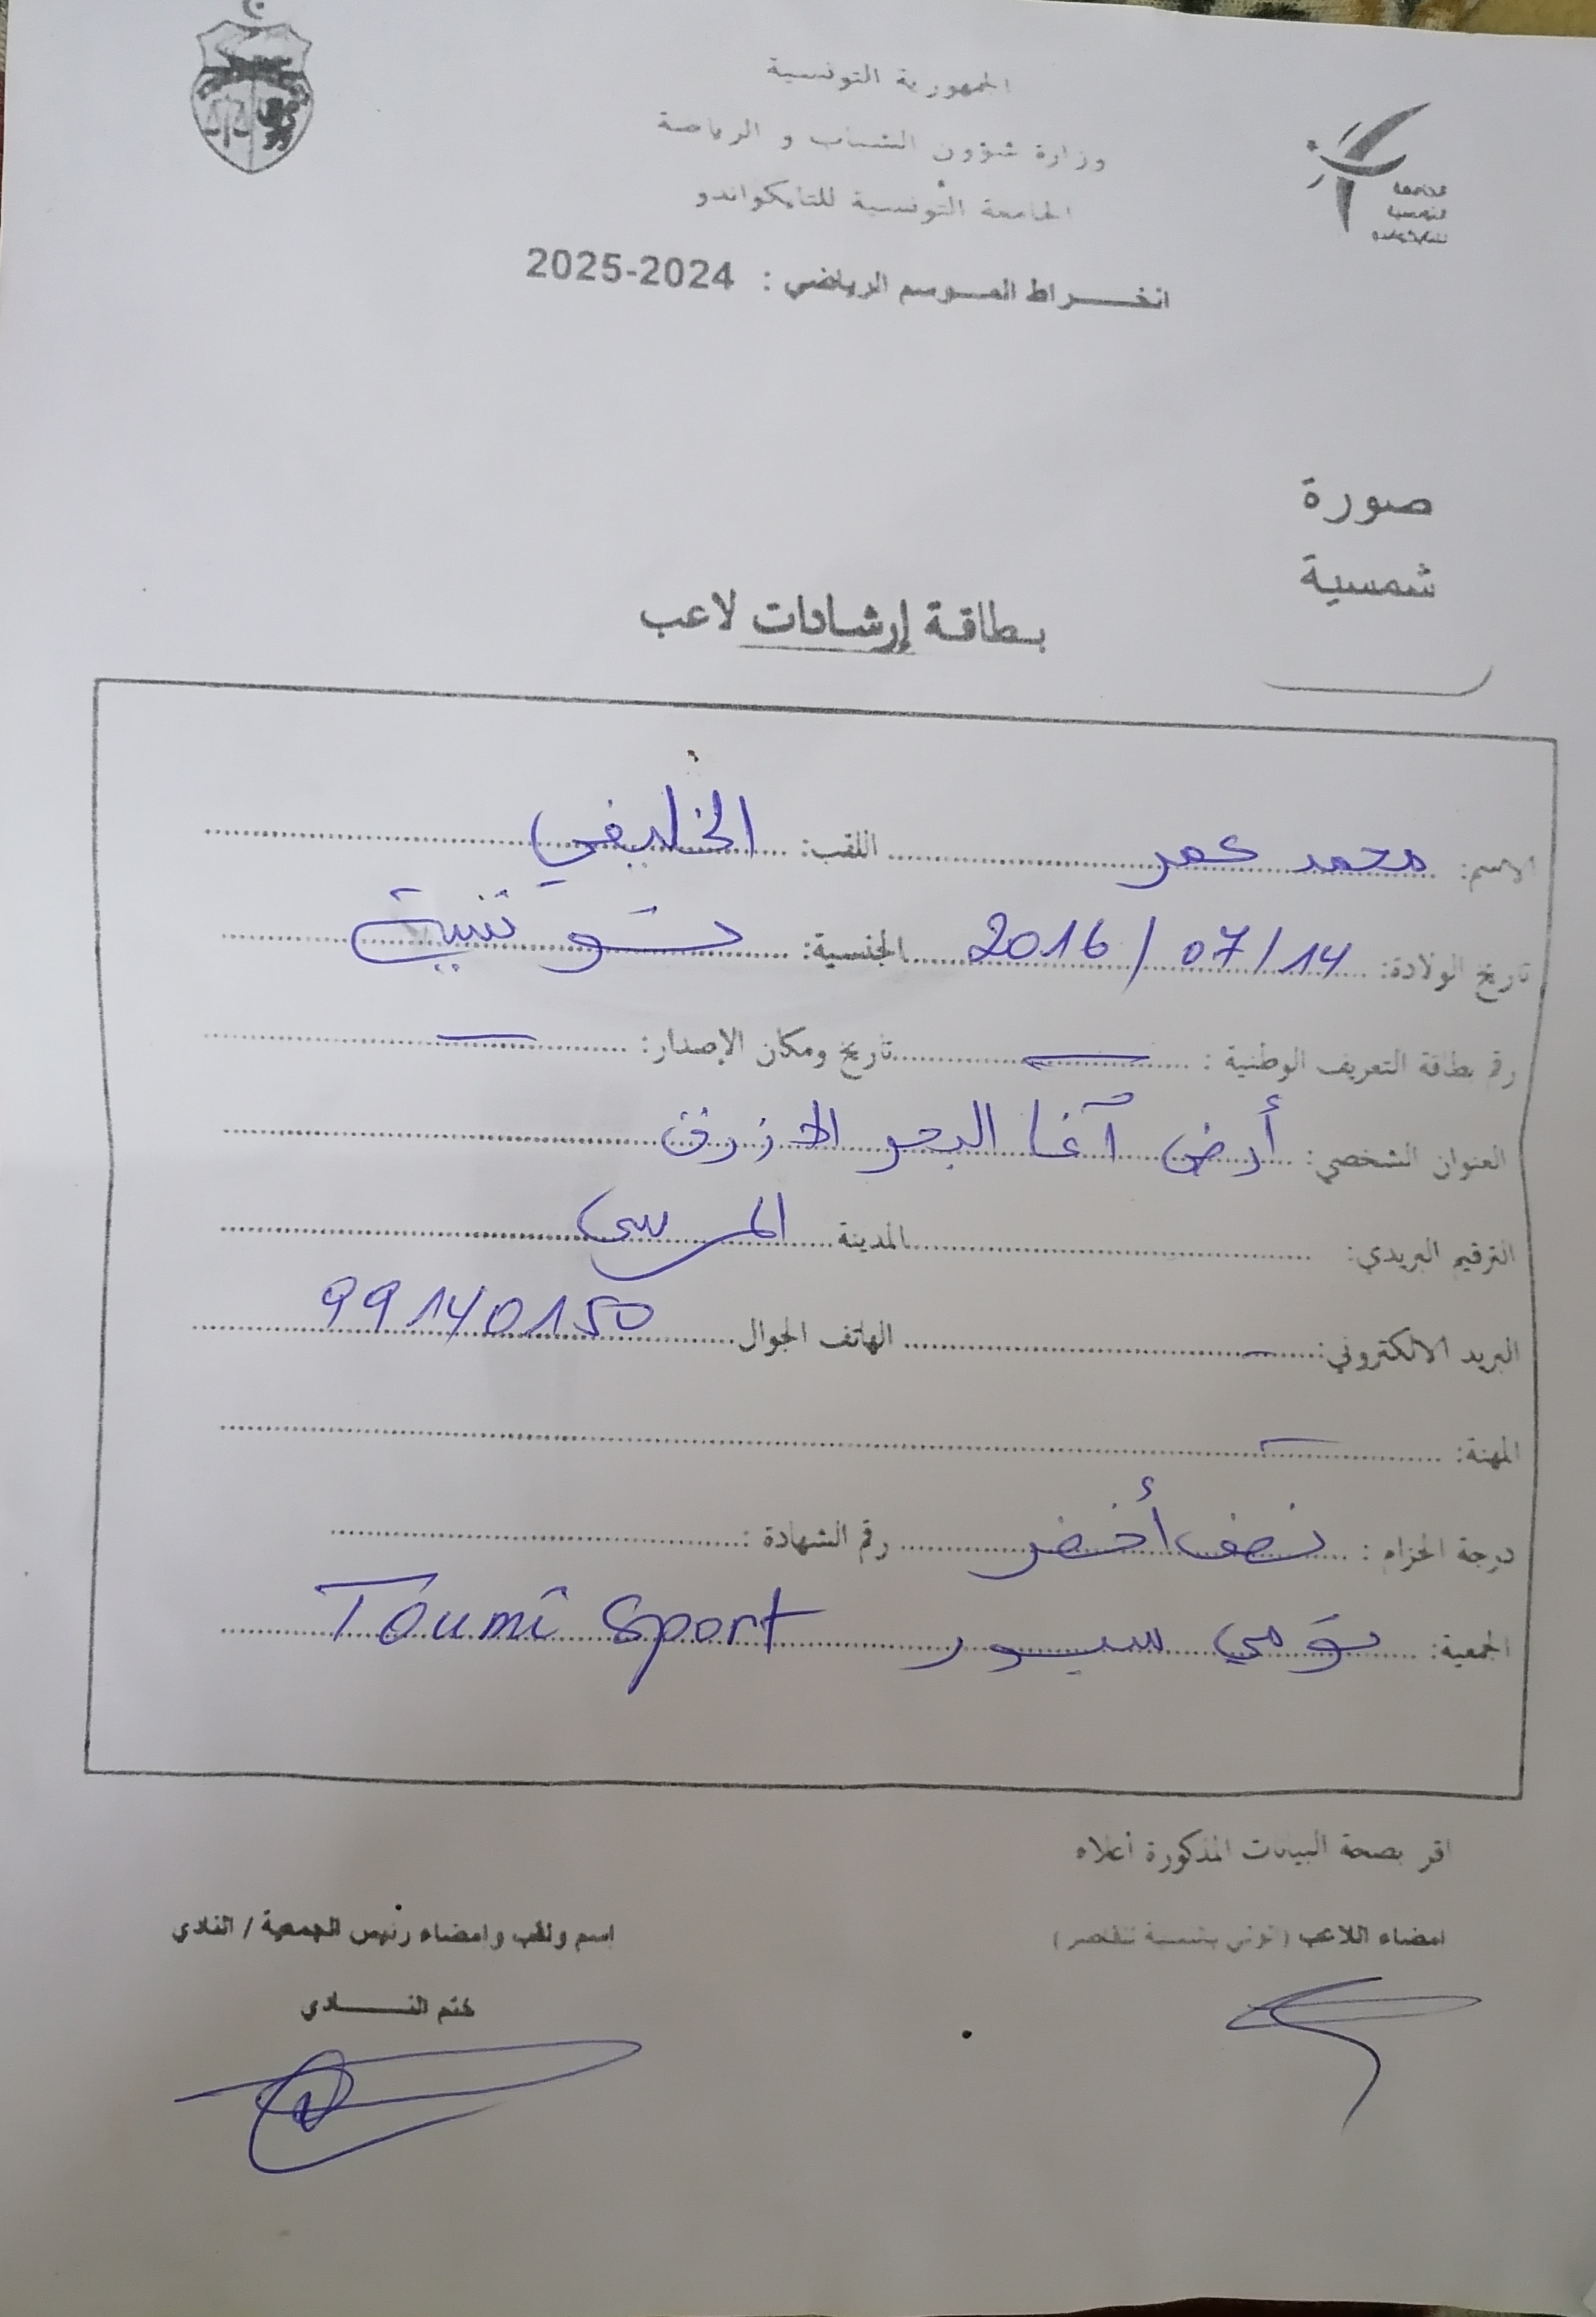 الجمهورية التونسية
وزارة شؤون الشباب و الرياضة
الجامعة التونسية للتايكواندو
الجامعة
التونسية
للتايكواندو
انخراط الموسم الرياضي : 2024-2025
صورة
شمسية
بطاقة إرشادات لاعب
الاسم: محمد عمر اللقب: الخليفي
تاريخ الولادة: 14/07/2016 الجنسية: تونسية
رقم بطاقة التعريف الوطنية : — تاريخ ومكان الإصدار: —
العنوان الشخصي: أرض آغا البحر الازرق
الترقيم البريدي: المدينة المرسى
البريد الالكتروني: — الهاتف الجوال 99140150
المهنة: —
درجة الحزام : نصف أخضر رقم الشهادة :
الجمعية: تومي سبور Toumi Sport
اقر بصحة البيانات المذكورة أعلاه
امضاء اللاعب اسم ولقب وامضاء رئيس الجمعية / النادي
ختم النادي